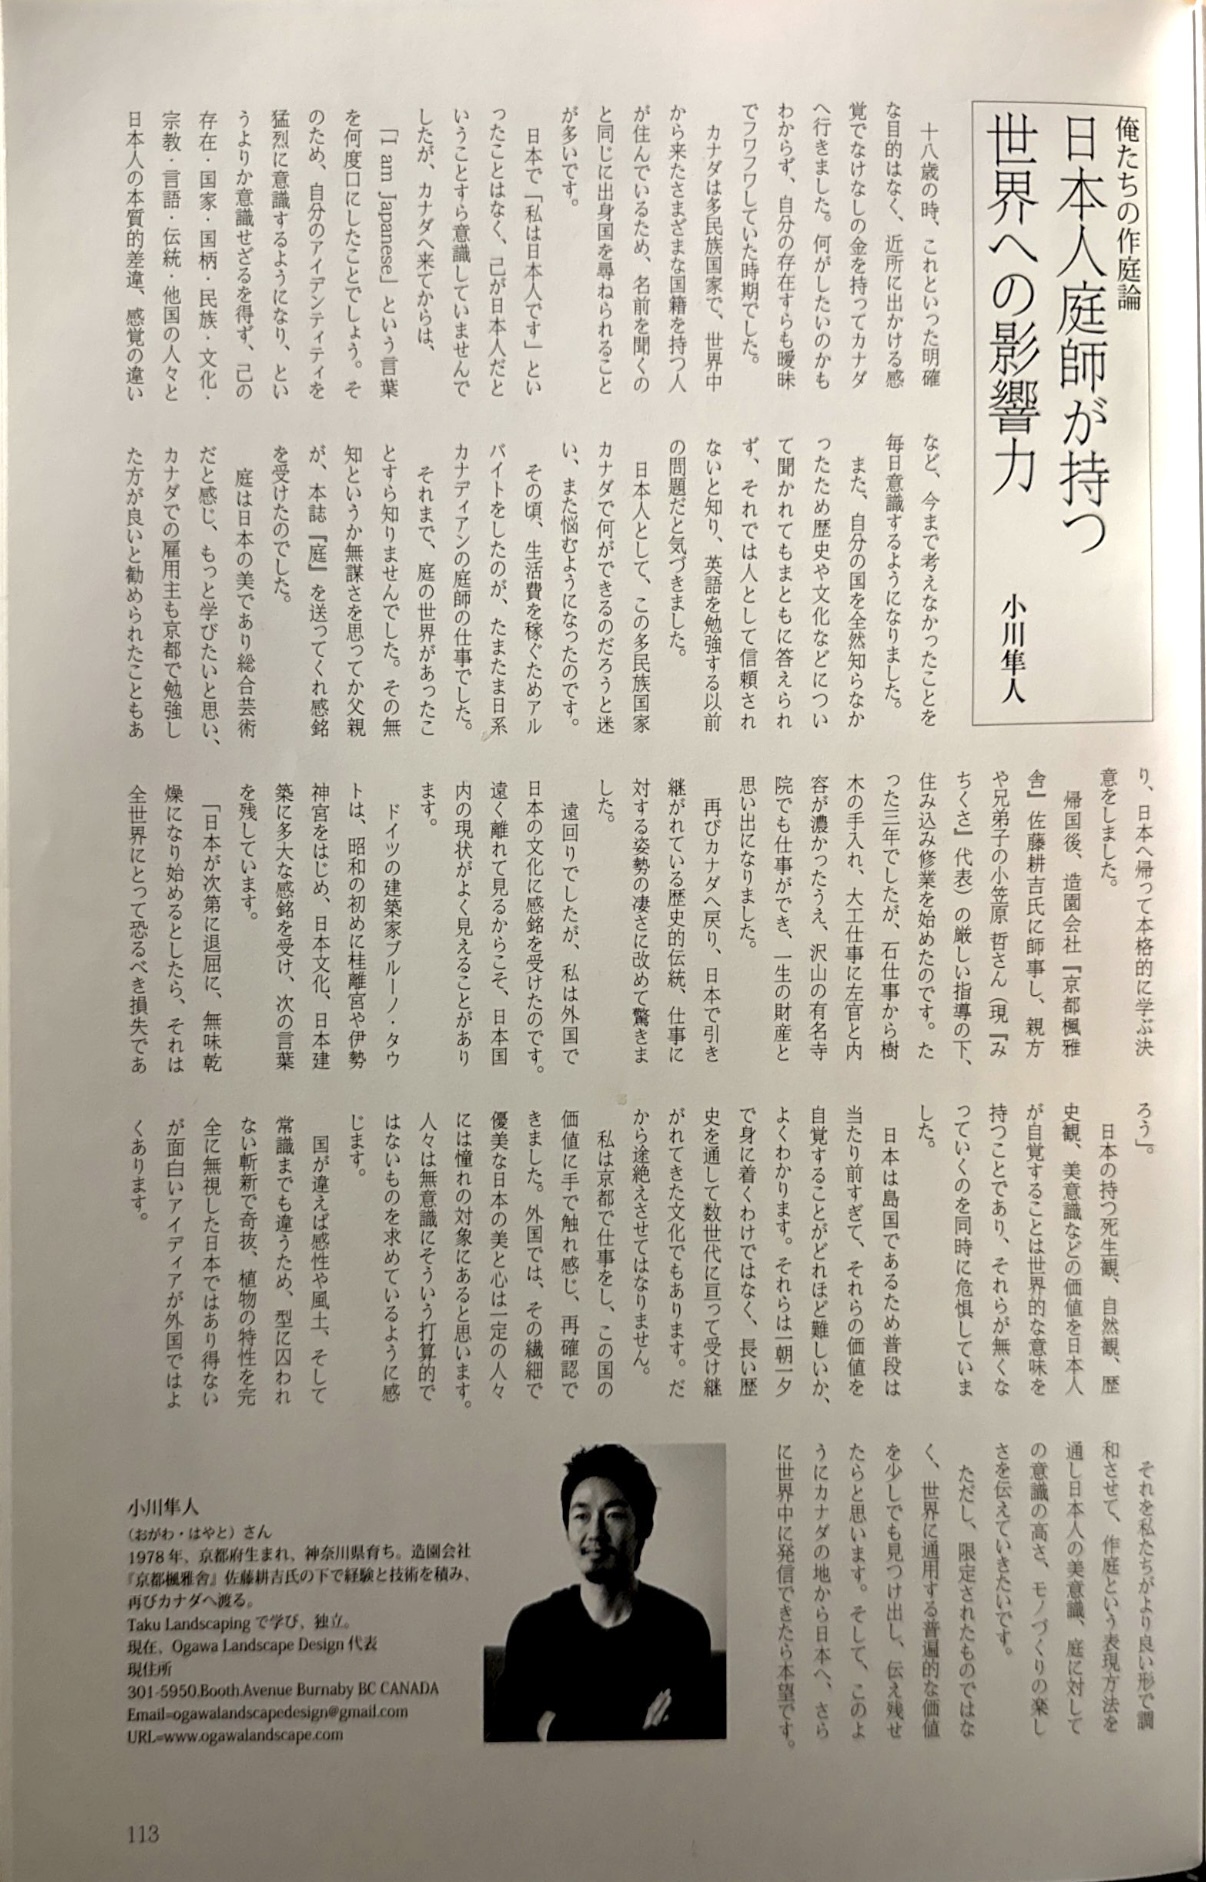 俺たちの作庭論
日本人庭師が持つ
世界への影響力
小川隼人
十八歳の時、これといった明確
な目的はなく、近所に出かける感
覚でなけなしの金を持ってカナダ
へ行きました。何がしたいのかも
わからず、自分の存在すらも曖昧
でフワフワしていた時期でした。
カナダは多民族国家で、世界中
から来たさまざまな国籍を持つ人
が住んでいるため、名前を聞くの
と同じに出身国を尋ねられること
が多いです。
日本で「私は日本人です」とい
ったことはなく、己が日本人だと
いうことすら意識していませんで
したが、カナダへ来てからは、
「I am Japanese」という言葉
を何度口にしたことでしょう。そ
のため、自分のアイデンティティを
猛烈に意識するようになり、とい
うよりか意識せざるを得ず、己の
存在・国家・国柄・民族・文化・
宗教・言語・伝統・他国の人々と
日本人の本質的差違、感覚の違い
など、今まで考えなかったことを
毎日意識するようになりました。
また、自分の国を全然知らなか
ったため歴史や文化などについ
て聞かれてもまともに答えられ
ず、それでは人として信頼され
ないと知り、英語を勉強する以前
の問題だと気づきました。
日本人として、この多民族国家
カナダで何ができるのだろうと迷
い、また悩むようになったのです。
その頃、生活費を稼ぐためアル
バイトをしたのが、たまたま日系
カナディアンの庭師の仕事でした。
それまで、庭の世界があったこ
とすら知りませんでした。その無
知というか無謀さを思ってか父親
が、本誌『庭』を送ってくれ感銘
を受けたのでした。
庭は日本の美であり総合芸術
だと感じ、もっと学びたいと思い、
カナダでの雇用主も京都で勉強し
た方が良いと勧められたこともあ
り、日本へ帰って本格的に学ぶ決
意をしました。
帰国後、造園会社『京都楓雅
舎』佐藤耕吉氏に師事し、親方
や兄弟子の小笠原 哲さん（現『み
ちくさ』代表）の厳しい指導の下、
住み込み修業を始めたのです。た
った三年でしたが、石仕事から樹
木の手入れ、大工仕事に左官と内
容が濃かったうえ、沢山の有名寺
院でも仕事ができ、一生の財産と
思い出になりました。
再びカナダへ戻り、日本で引き
継がれている歴史的伝統、仕事に
対する姿勢の凄さに改めて驚きま
した。
遠回りでしたが、私は外国で
日本の文化に感銘を受けたのです。
遠く離れて見るからこそ、日本国
内の現状がよく見えることがあり
ます。
ドイツの建築家ブルーノ・タウ
トは、昭和の初めに桂離宮や伊勢
神宮をはじめ、日本文化、日本建
築に多大な感銘を受け、次の言葉
を残しています。
「日本が次第に退屈に、無味乾
燥になり始めるとしたら、それは
全世界にとって恐るべき損失であ
ろう」。
日本の持つ死生観、自然観、歴
史観、美意識などの価値を日本人
が自覚することは世界的な意味を
持つことであり、それらが無くな
っていくのを同時に危惧していま
した。
日本は島国であるため普段は
当たり前すぎて、それらの価値を
自覚することがどれほど難しいか、
よくわかります。それらは一朝一夕
で身に着くわけではなく、長い歴
史を通して数世代に亘って受け継
がれてきた文化でもあります。だ
から途絶えさせてはなりません。
私は京都で仕事をし、この国の
価値に手で触れ感じ、再確認で
きました。外国では、その繊細で
優美な日本の美と心は一定の人々
には憧れの対象にあると思います。
人々は無意識にそういう打算的で
はないものを求めているように感
じます。
国が違えば感性や風土、そして
常識までも違うため、型に囚われ
ない斬新で奇抜、植物の特性を完
全に無視した日本ではあり得ない
が面白いアイディアが外国ではよ
くあります。
それを私たちがより良い形で調
和させて、作庭という表現方法を
通し日本人の美意識、庭に対して
の意識の高さ、モノづくりの楽し
さを伝えていきたいです。
ただし、限定されたものではな
く、世界に通用する普遍的な価値
を少しでも見つけ出し、伝え残せ
たらと思います。そして、このよ
うにカナダの地から日本へ、さら
に世界中に発信できたら本望です。
小川隼人
（おがわ・はやと）さん
1978年、京都府生まれ、神奈川県育ち。造園会社
『京都楓雅舎』佐藤耕吉氏の下で経験と技術を積み、
再びカナダへ渡る。
Taku Landscapingで学び、独立。
現在、Ogawa Landscape Design代表
現住所
301-5950.Booth Avenue Burnaby BC CANADA
Email=ogawalandscapedesign@gmail.com
URL=www.ogawalandscape.com
113